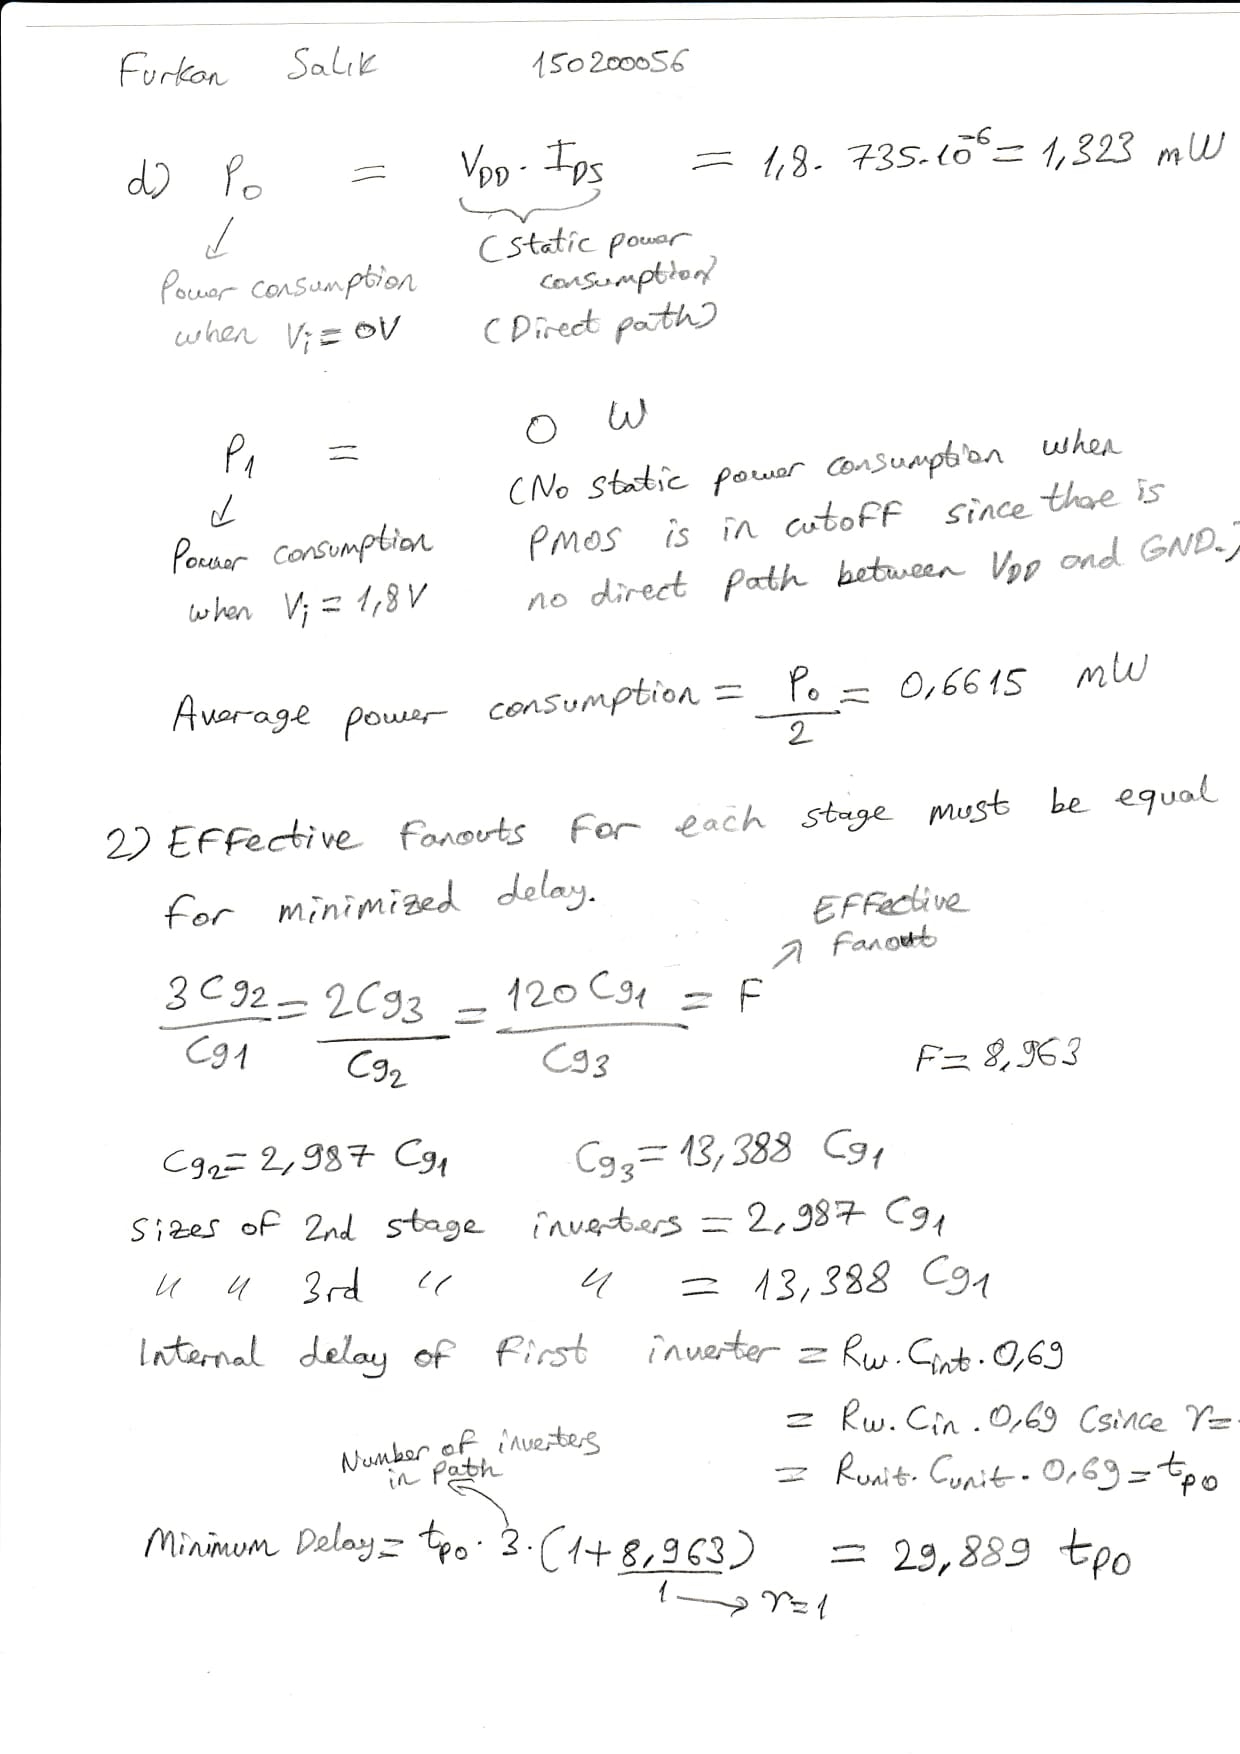 Furkan Salık 150200056
d) P0 = VDD . IDS = 1,8 . 735.10^-6 = 1,323 mW
↓
Power consumption when Vi = 0V
(Static power consumption)
(Direct path)
P1 = 0 W
↓
Power consumption when Vi = 1,8V
(No static power consumption when
PMOS is in cutoff since there is
no direct path between VDD and GND.)
Average power consumption = P0/2 = 0,6615 mW
2) Effective fanouts for each stage must be equal
for minimized delay.
Effective
Fanout
3Cg2/Cg1 = 2Cg3/Cg2 = 120Cg1/Cg3 = F
F = 8,963
Cg2 = 2,987 Cg1 Cg3 = 13,388 Cg1
Sizes of 2nd stage inverters = 2,987 Cg1
" " 3rd " " = 13,388 Cg1
Internal delay of first inverter = Rw. Cint. 0,69
= Rw. Cin. 0,69 (since γ=
= Runit. Cunit. 0,69 = tp0
Number of inverters
in path
Minimum Delay = tp0 . 3. (1+8,963/1) = 29,889 tp0
→ γ=1